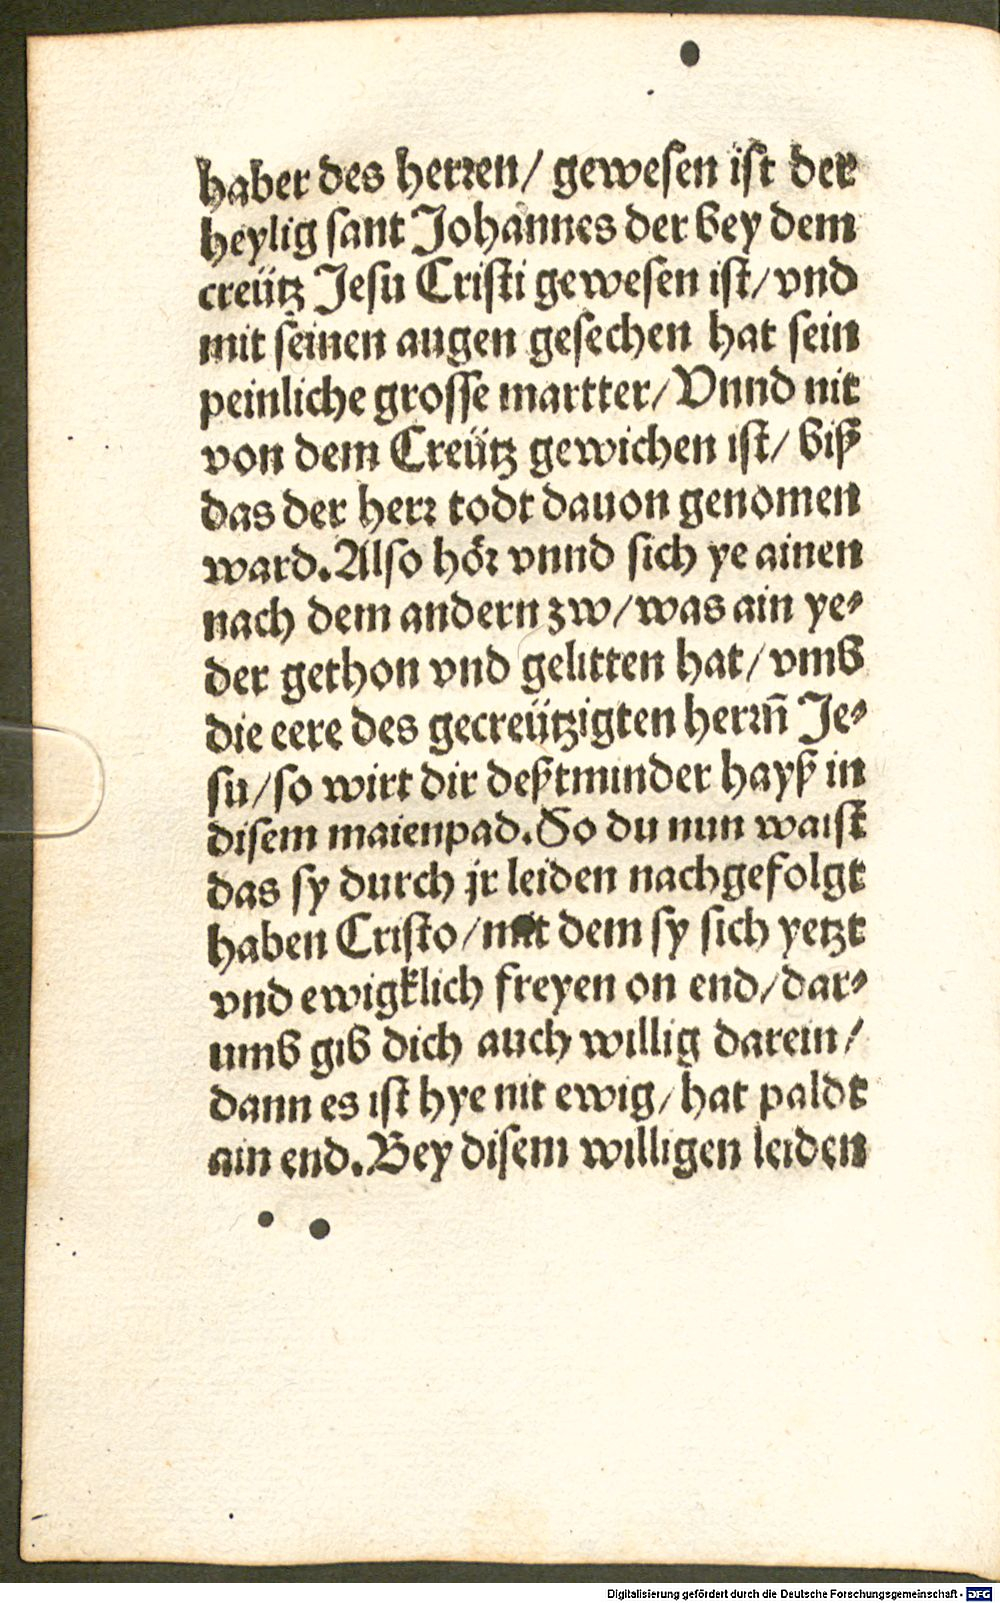 haber des herꝛen/ gewesen ist der
heylig sant Johannes der bey dem
creütz Jesu Cristi gewesen ist/ vnd
mit seinen augen gesechen hat sein
peinliche grosse martter/ Vnnd nit
von dem Creütz gewichen ist/ biß
das der herꝛ todt dauon genomen
ward. Also höꝛ vnnd sich ye ainen
nach dem andern zw/ was ain ye⸗
der gethon vnd gelitten hat/ vmb
die eere des gecreützigten herꝛn̄ Je⸗
su/ so wirt dir deßtminder hayß in
disem maienpad. So du nun waist
das sy durch jr leiden nachgefolgt
haben Cristo/ mit dem sy sich yetzt
vnd ewigklich freyen on end/ dar⸗
umb gib dich auch willig darein/
dann es ist hye nit ewig/ hat paldt
ain end. Bey disem willigen leiden
Digitalisierung gefördert durch die Deutsche Forschungsgemeinschaft - DFG